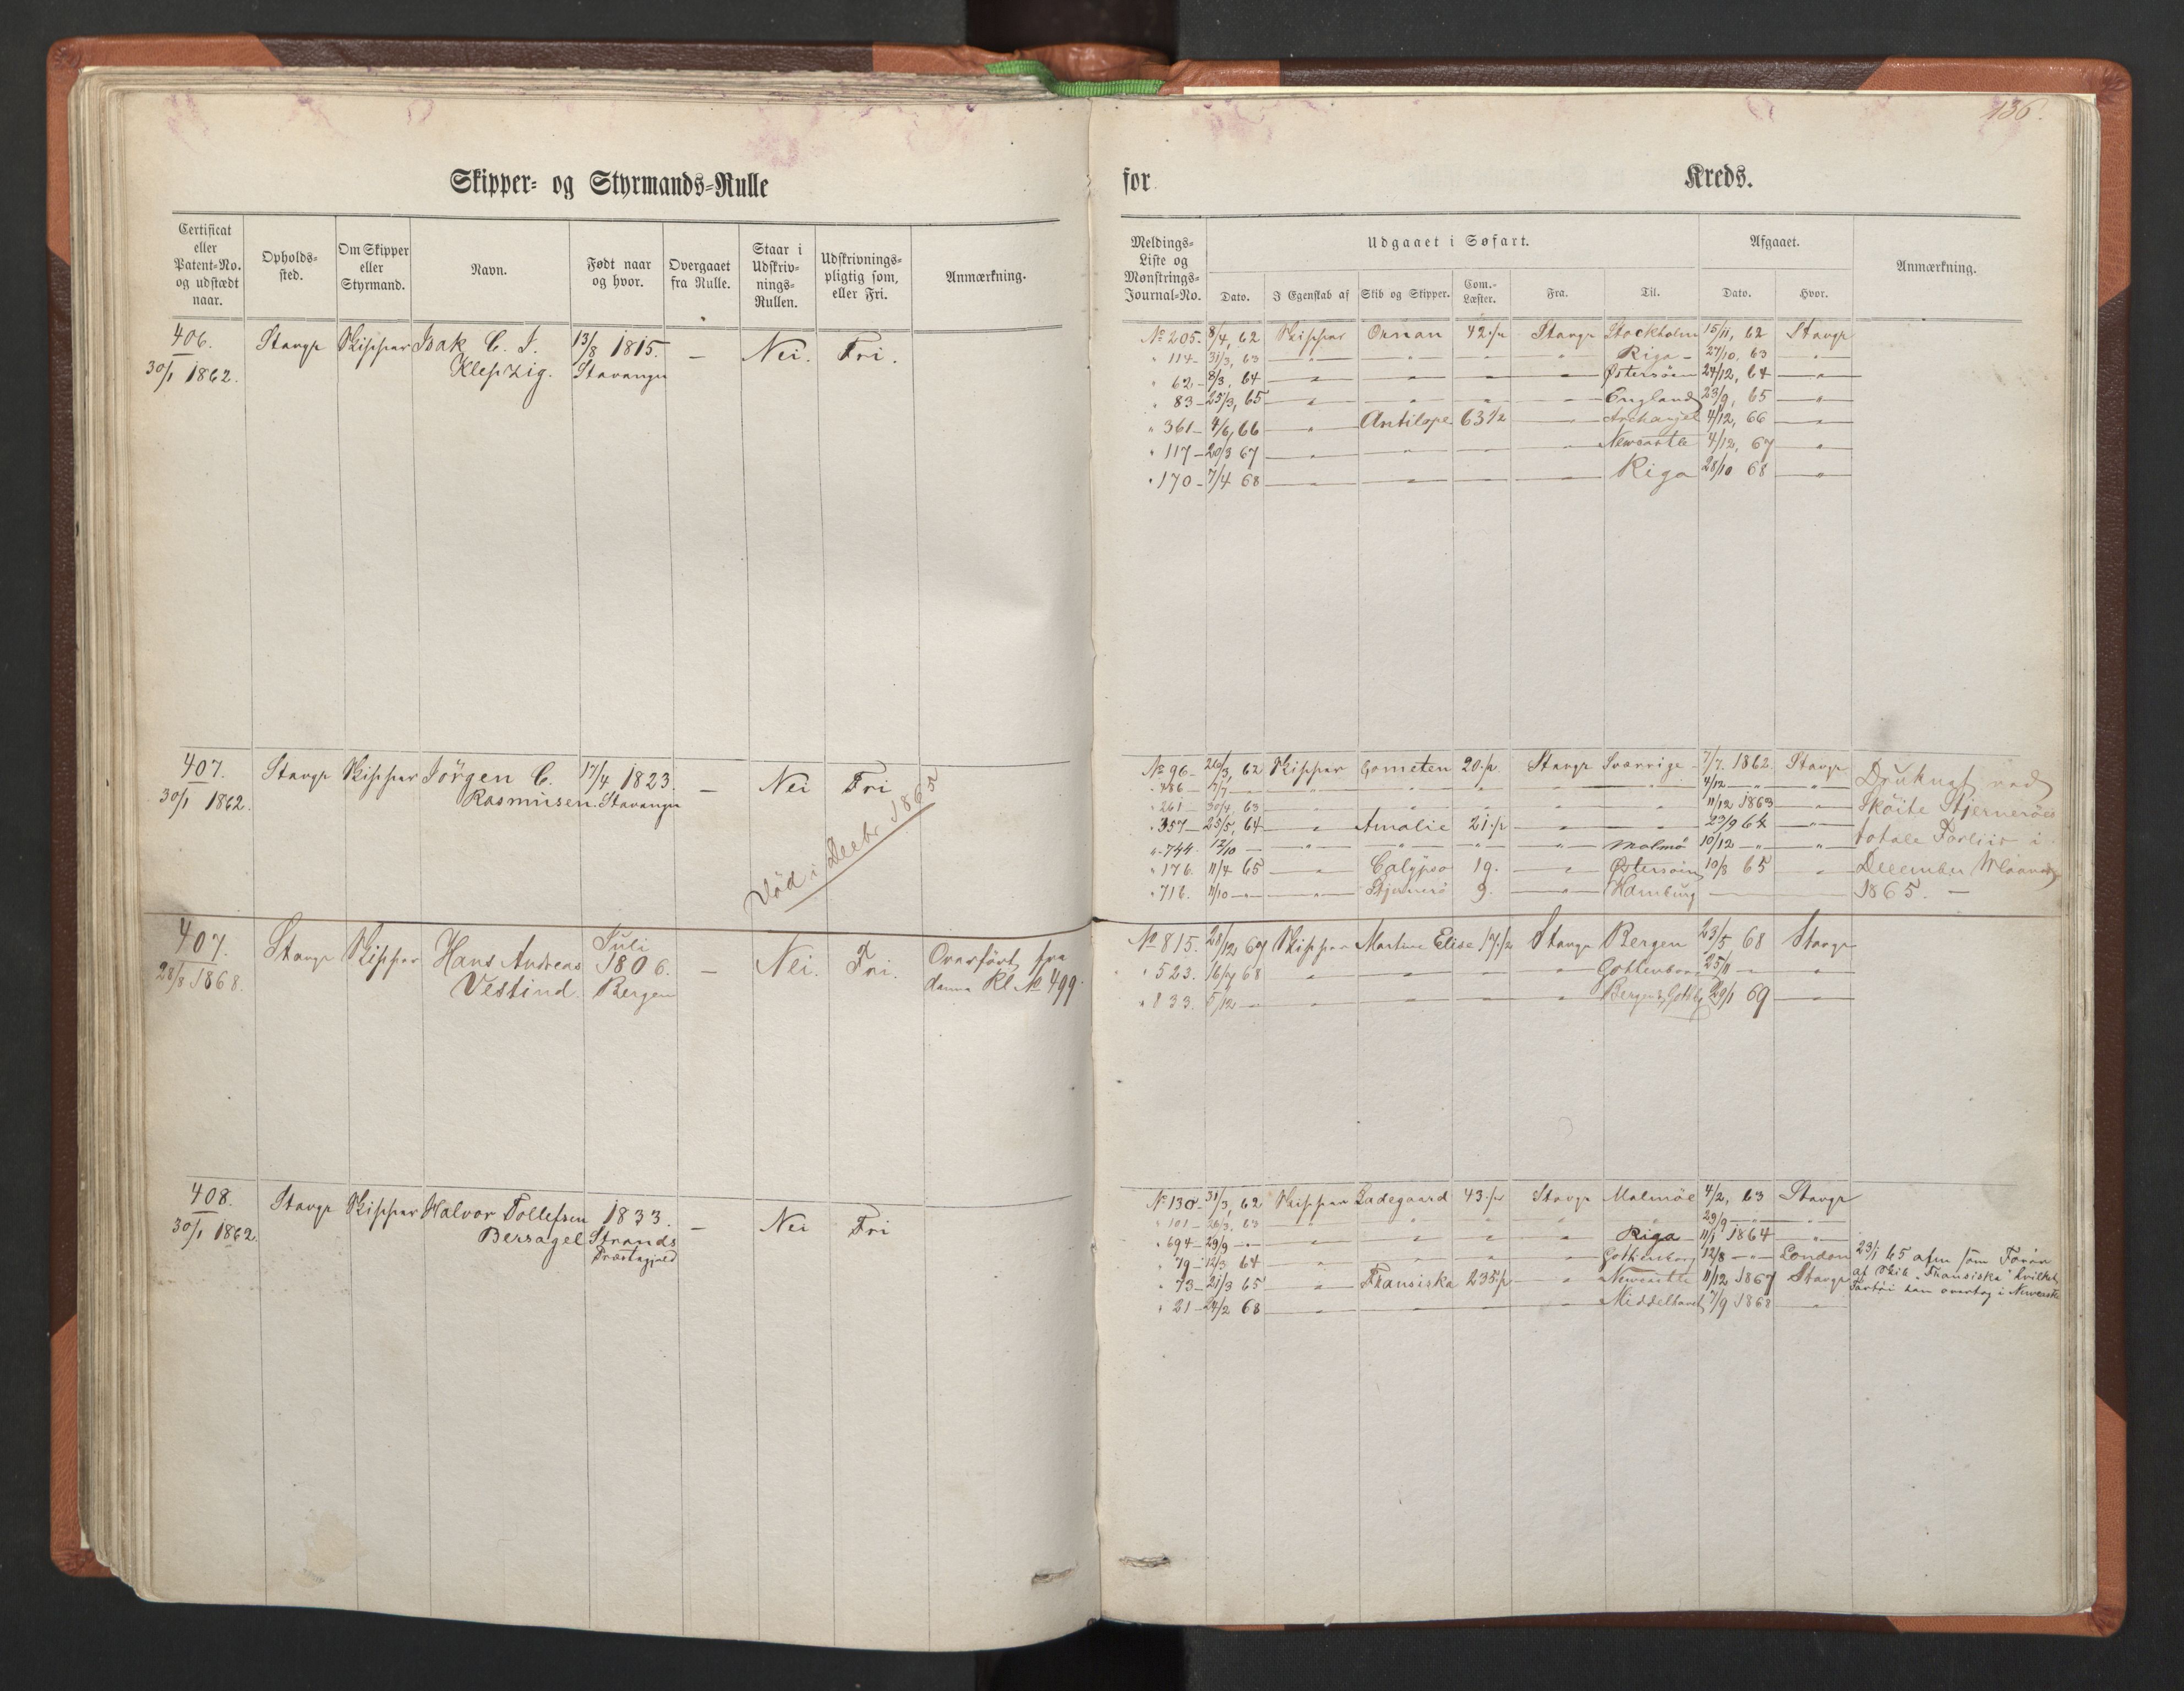 136.
Skipper- og Styrmands-Rulle for Kreds.
Certificat eller Patent-No. og udstædt naar. Opholds-sted. Om Skipper eller Styrmand. Navn. Født naar og hvor. Overgaaet fra Rulle. Staar i Udskriv-nings-Rullen. Udskrivnings-pligtig som, eller Fri. Anmærkning.
Meldings-Liste og Mønstrings-Journal-No. Udgaaet i Søfart. Afgaaet. Anmærkning.
Dato. I Egenskab af Skib og Skipper. Com.-Læster. Fra. Til. Dato. Hvor.
406. Stavgr Skipper Isak C. J. 13/8 1815. — Nei. Fri.
30/1 1862. Klepzig. Stavanger
No 205. 8/4, 62 Skipper Ornan 42 Stavgr Stockholm 15/11, 62 Stavgr
" 114 - 31/3, 63 — " — — " — — " — — " — Riga - 27/10, 63 — " —
" 62 - 8/3, 64 — " — — " — — " — — " — Østersøen 24/12, 64 — " —
" 83 - 25/3, 65 — " — — " — — " — — " — England 23/9, 65 — " —
" 361 - 4/6, 66 — " — Antilope 63 1/2 — " — Archangel 4/12, 66 — " —
" 117 - 20/3 67 — " — — " — — " — — " — Newcastle 4/12, 67 — " —
" 170 - 7/4 68 — " — — " — — " — — " — Riga 28/10 68 — " —
407. Stavgr Skipper Jörgen C. 17/4 1823. — Nei Fri
30/1 1862. Rasmusen. Stavanger
Död i Decbr 1865
No 96 - 26/3, 62 Skipper Cometen 20 Stavgr Sverrige - 7/7. 1862. Stavgr
" 486 - 7/7 — " — — " — — " — — " — — " — 4/12 — " — — " —
" 261 - 30/4, 63 — " — — " — — " — — " — — " — 11/12 1863 — " —
" 357 - 25/5, 64 — " — Amalie 21 — " — — " — 23/9 64 — " —
" 744. 12/10 — " — — " — — " — — " — Malmø 10/12 — " — — " —
" 176. 11/4 65 — " — Calypso 19. — " — Østersøen 10/8 65 — " —
" 716. 11/10 — " — — " — Stjernerö 9. — " — Hamburg
Druknet ved
Sköite Stjerneröes
totale Forliis i
December Maaned
1865. —
407. Stavgr Skipper Hans Andreas Juli 1806. — Nei. Fri. Overfört fra
28/8 1868. Vestind. Bergen denne Rl. No 499.
No 815. 28/12 67 Skipper Martine Elise Stavgr Bergen 23/5 68 Stavgr
" 523. 68 — " — — " — — " — — " — Gottenborg 25/11 — " — — " —
" 833. 5/12 — " — — " — — " — — " — — " — Bergen & Gotbg 29/1 69 — " —
408. Stavgr Skipper Halvor Tollefsen 1833. — Nei Fri
30/1 1862. Bersagel Strands
Præstegjeld
No 130 - 31/3, 62 Skipper Ladegaard 43 Stavgr Malmöe 4/2, 63 Stavgr
" 101 - 26/3. 63 — " — — " — — " — — " — — " — 29/9 — " — — " —
" 694 - 29/9 — " — — " — — " — — " — — " — Riga - 11/1 1864 — " —
" 79 - 12/3 64 — " — — " — — " — — " — Gothenborg 12/8 — " — London
" 73 - 21/3 65 — " — Fransiska 235 — " — Newcastle 11/12 1867 Stavgr
" 21 - 24/2 68 — " — — " — — " — — " — Middelhavet 7/9 1868 — " —
23/1 65 som Förer
af Skib "Fransiska" hvilket
Fartöi han overtog i Newcastle